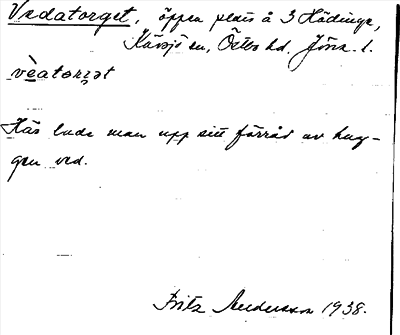 Vedatorget, öppen plats å 3 Hådinge,
Kävsjö sn, Östbo hd, Jönk. l.
vèatorrət
Här lade man upp sitt förråd av hug-
gen ved.
Fritz Andersson 1938.